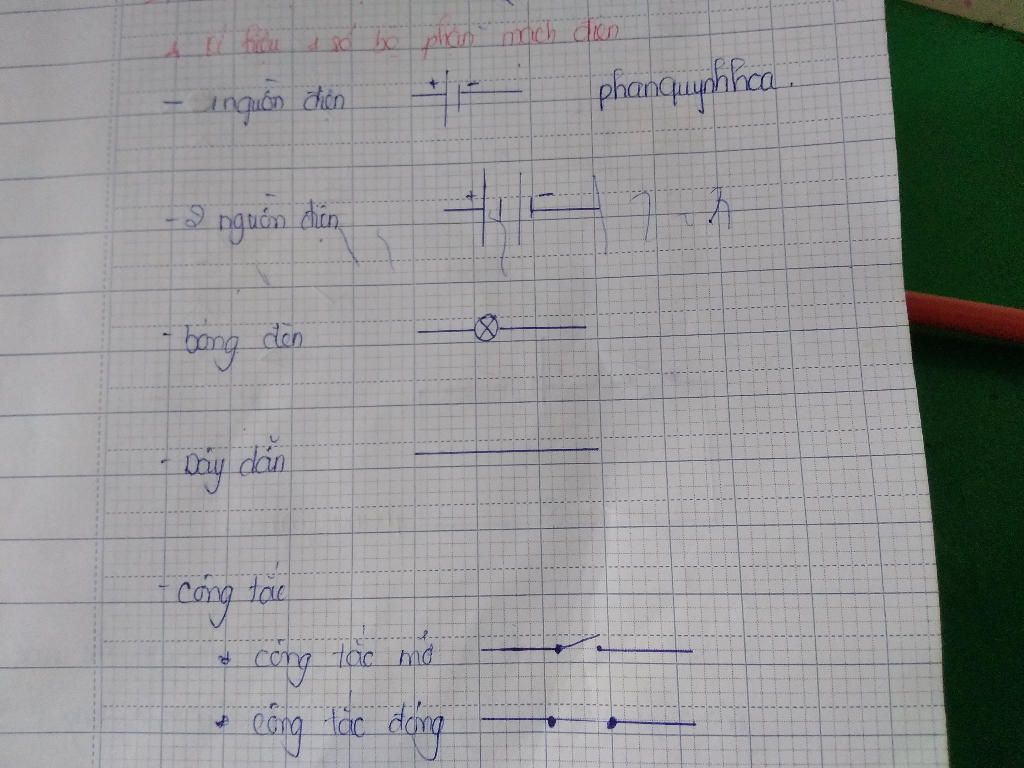 1 kí hiệu 1 số bộ phận mạch điện
- 1 nguồn điện + - phanquynhhca.
- 2 nguồn điện + -
- bóng đèn
- Dây dẫn
- công tắc
+ công tắc mở
+ công tắc đóng